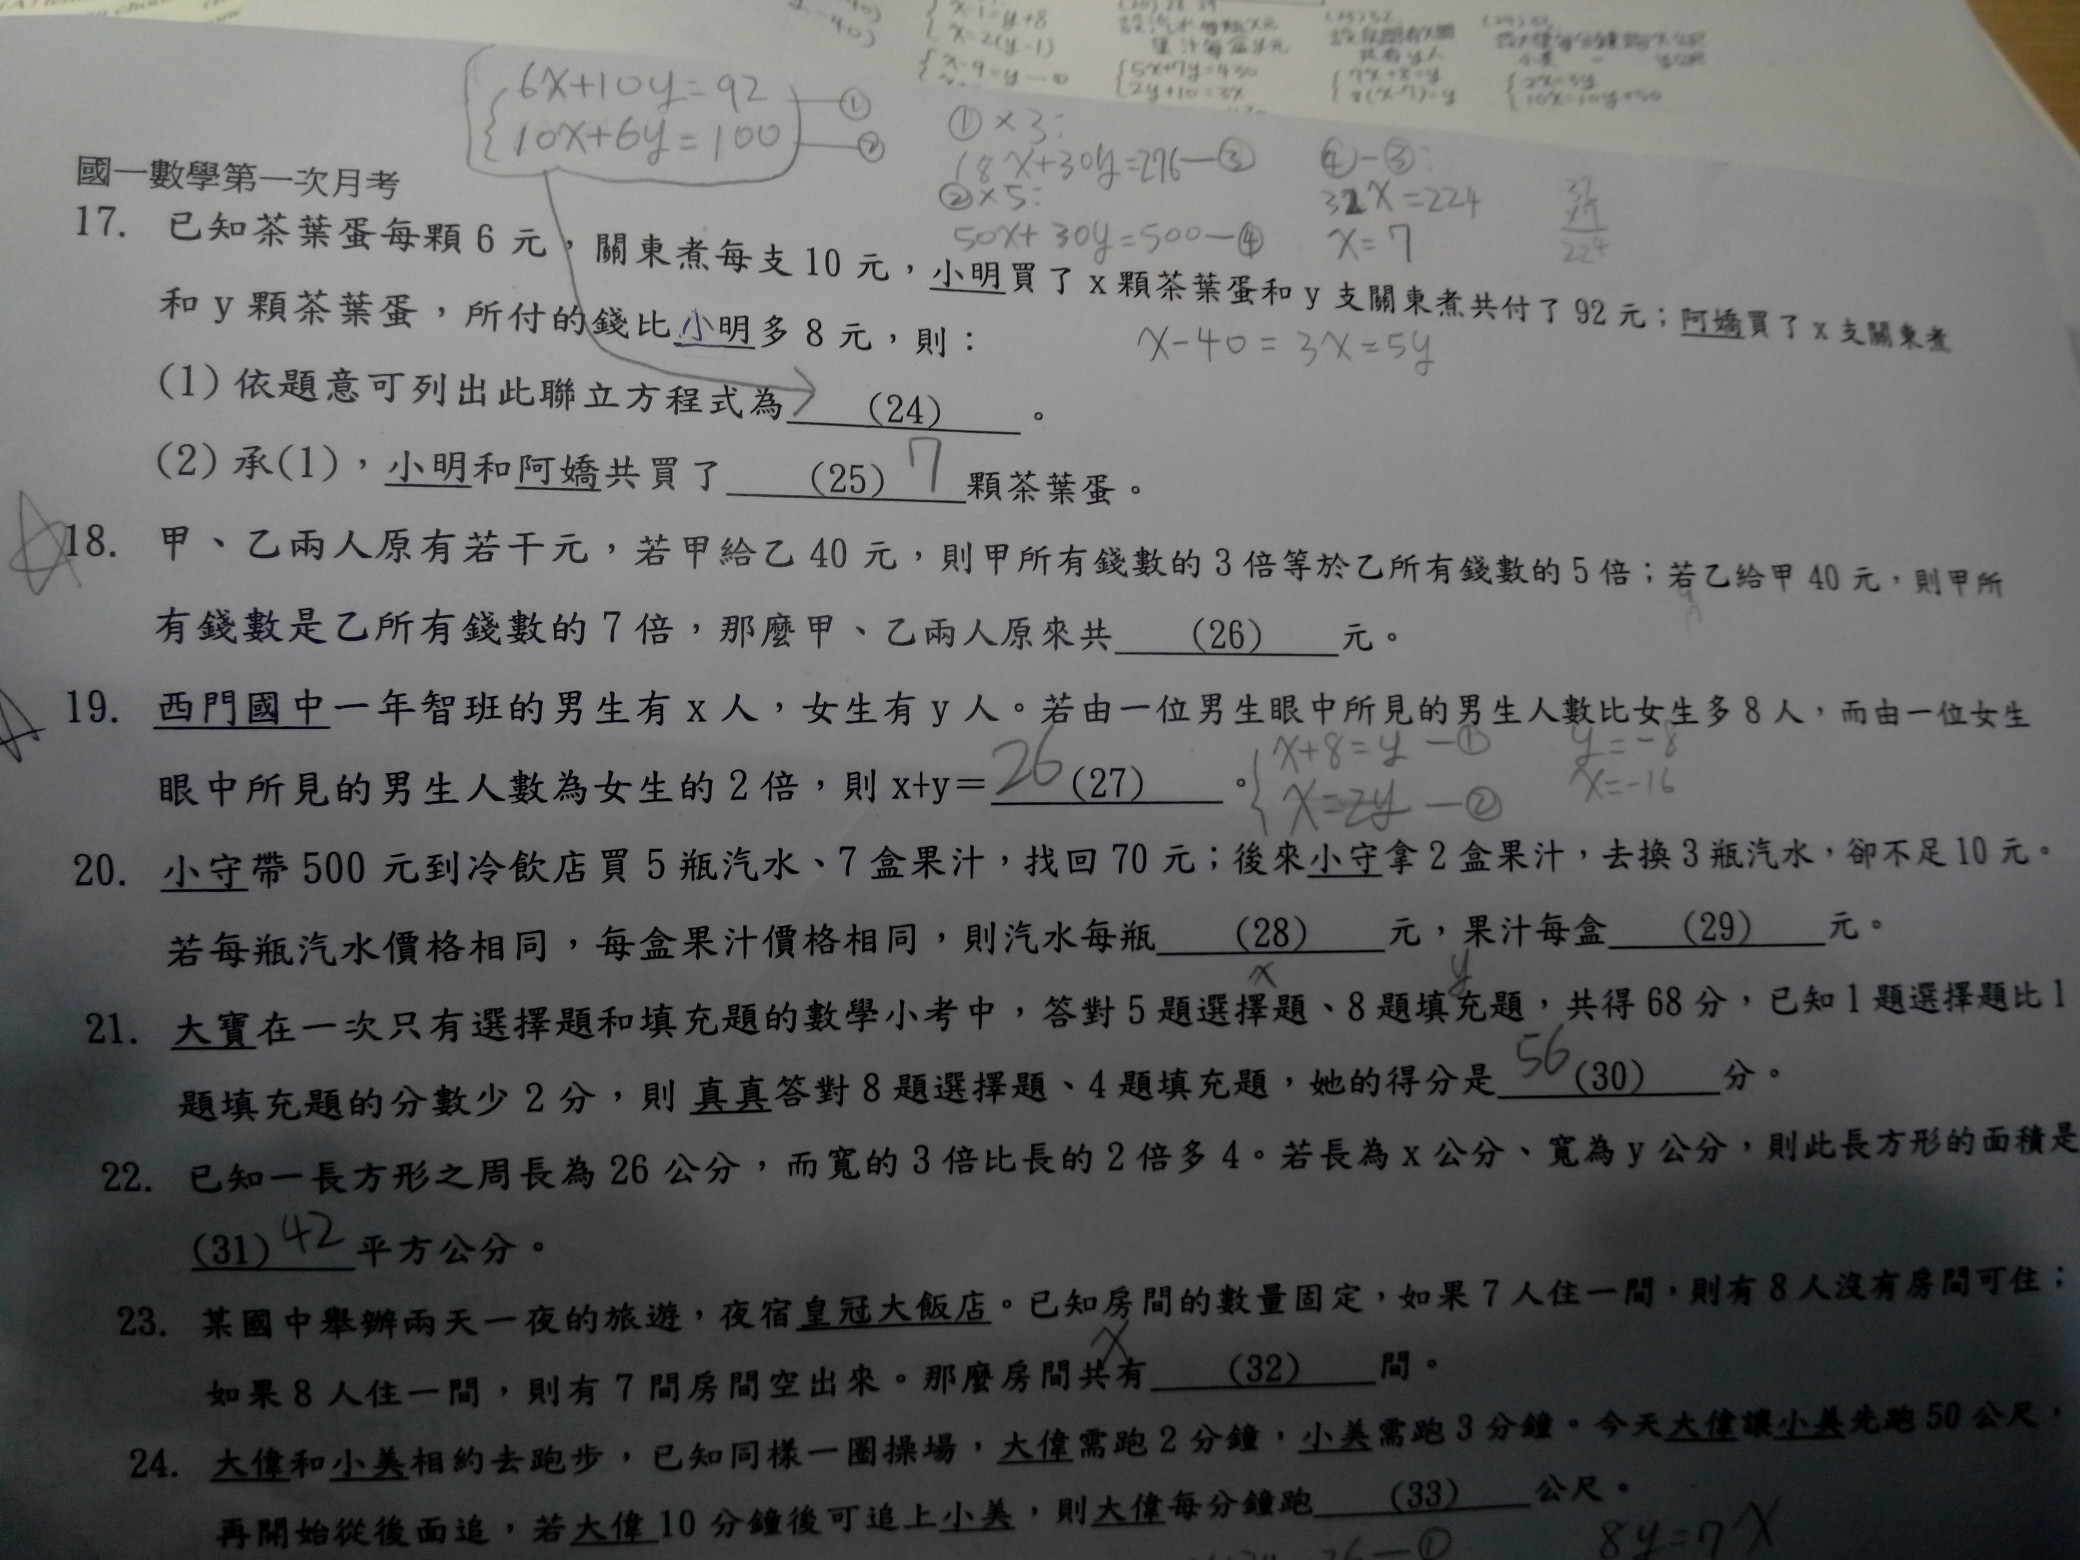 x-1=y+8
x=2(y-1)
5x+7y=430
2y+10=3x
7x+8=y
8(x-7)=y
2x=3y
10x=10y+50
6x+10y=92 ①
10x+6y=100 ②
①×3:
18x+30y=276—③
②×5:
50x+30y=500—④
④-③:
32x=224
x=7
224
國一數學第一次月考
17. 已知茶葉蛋每顆6元,關東煮每支10元,小明買了x顆茶葉蛋和y支關東煮共付了92元;阿嬌買了x支關東煮
和y顆茶葉蛋,所付的錢比小明多8元,則:
x-40=3x=5y
(1)依題意可列出此聯立方程式為 (24) 。
(2)承(1),小明和阿嬌共買了 (25) 7 顆茶葉蛋。
18. 甲、乙兩人原有若干元,若甲給乙40元,則甲所有錢數的3倍等於乙所有錢數的5倍;若乙給甲40元,則甲所
有錢數是乙所有錢數的7倍,那麼甲、乙兩人原來共 (26) 元。
19. 西門國中一年智班的男生有x人,女生有y人。若由一位男生眼中所見的男生人數比女生多8人,而由一位女生
眼中所見的男生人數為女生的2倍,則x+y= 26 (27) 。
x+8=y —①
x=2y —②
y=-8
x=-16
20. 小守帶500元到冷飲店買5瓶汽水、7盒果汁,找回70元;後來小守拿2盒果汁,去換3瓶汽水,卻不足10元。
若每瓶汽水價格相同,每盒果汁價格相同,則汽水每瓶 (28) 元,果汁每盒 (29) 元。
x y
21. 大寶在一次只有選擇題和填充題的數學小考中,答對5題選擇題、8題填充題,共得68分,已知1題選擇題比1
題填充題的分數少2分,則 真真答對8題選擇題、4題填充題,她的得分是 56 (30) 分。
22. 已知一長方形之周長為26公分,而寬的3倍比長的2倍多4。若長為x公分、寬為y公分,則此長方形的面積是
(31) 42 平方公分。
23. 某國中舉辦兩天一夜的旅遊,夜宿皇冠大飯店。已知房間的數量固定,如果7人住一間,則有8人沒有房間可住;
x
如果8人住一間,則有7間房間空出來。那麼房間共有 (32) 間。
24. 大偉和小美相約去跑步,已知同樣一圈操場,大偉需跑2分鐘,小美需跑3分鐘。今天大偉讓小美先跑50公尺,
再開始從後面追,若大偉10分鐘後可追上小美,則大偉每分鐘跑 (33) 公尺。
8y=7x